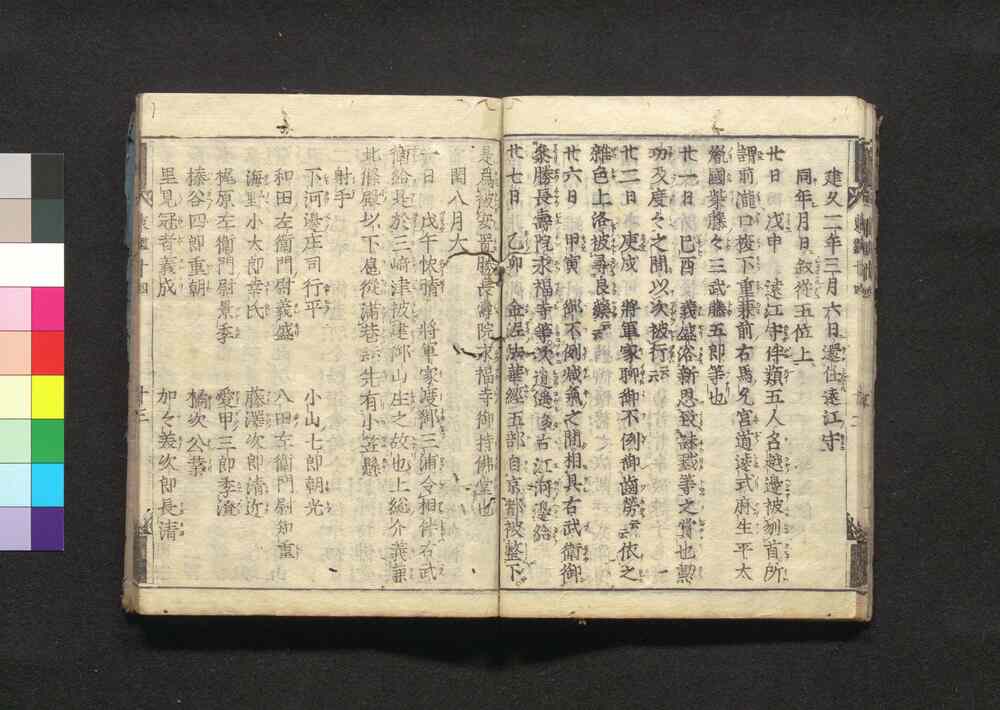 建久二年三月六日還任遠江守
同年月日叙従五位上
廿日 戊申 遠江守伴類五人名越邊被刎首所
謂前瀧口榎下重兼前右馬允宮道遠式麻生平太
胤國柴藤三武藤五郎等也
廿一日 己酉 義盛浴新恩致諫職等之賞也勲
功及度々之間以次被行云云
廿二日 庚戌 將軍家聊御不例御齒勞云云依之
雜色上洛被尋良藥云云
廿六日 甲寅 御不例減氣之間相具右武衛御
參勝長壽院永福寺等次逍遙多古江河邊給
廿七日 乙卯 金泥法華經五部自京都被整下
是爲被安置勝長壽院永福寺御持佛堂也
閏八月大
一日 戊午快晴 將軍家渡御三浦令相伴右武
衛給其於三崎津被建御山庄之故也上総介義兼
北條殿以下扈從滿巷云云先有小笠懸
射手
下河邊庄司行平 小山七郎朝光
和田左衛門尉義盛 八田左衛門尉知重
海野小太郎幸氏 藤澤次郎清近
梶原左衛門尉景季 愛甲三郎季澄
榛谷四郎重朝 橘次公業
里見冠者義成 加々美次郎長清
東鑑十四
十三